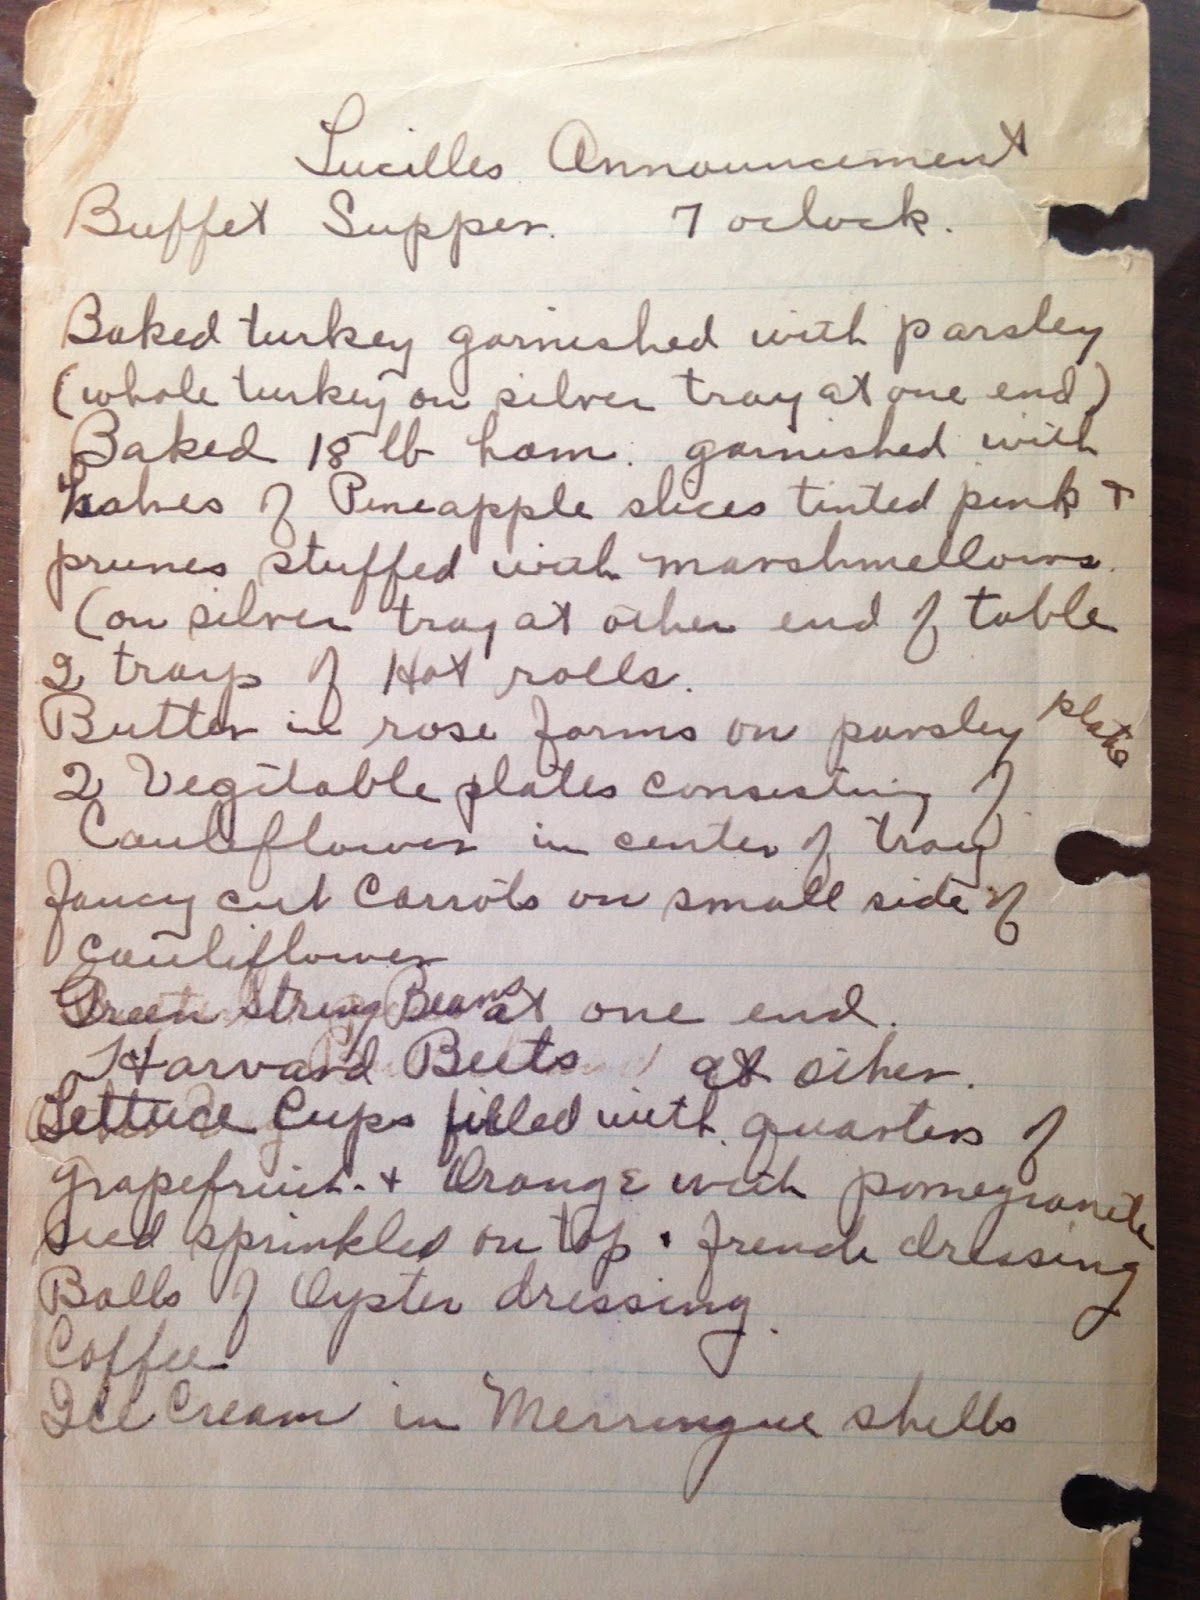 Lucilles Announcement
Buffet Supper. 7 oclock.
Baked turkey garnished with parsley
(whole turkey on silver tray at one end)
Baked 18 lb ham. garnished with
halves of Pineapple slices tinted pink +
prunes stuffed with marshmellows.
(on silver tray at other end of table
2 trays of Hot rolls.
Butter in rose forms on parsley plate
2 Vegitable plates consisting of
Cauliflower in center of tray
fancy cut Carrots on small side of
cauliflower
Green String Beans at one end.
Harvard Beets at other.
Lettuce Cups filled with quarters of
grapefruit + Orange with pomegranite
seed sprinkled on top. french dressing
Balls of Oyster dressing.
Coffee
Ice Cream in Merringue shells